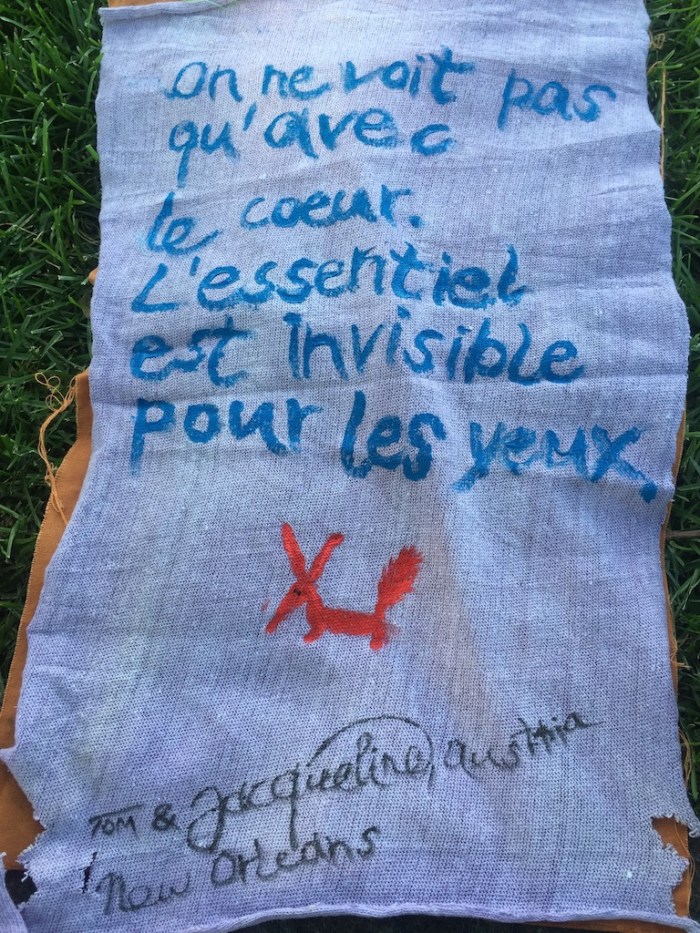 On ne voit pas
qu'avec
le coeur.
L'essentiel
est invisible
pour les yeux.
TOM & Jacqueline, austria
New Orleans